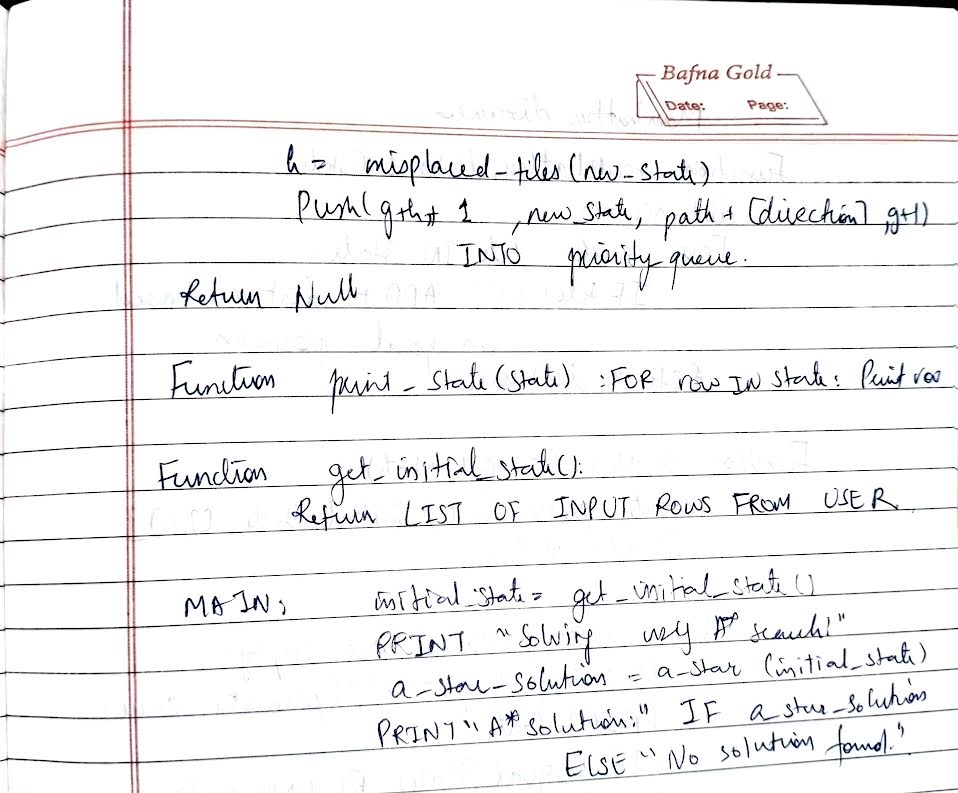 Bafna Gold
Date: Page:
h = misplaced-tiles(new-state)
Push(g+h+ 1 ,new_state, path + [direction] ,g+1)
INTO priority_queue.
Return Null
Function print_state(state) :FOR row IN state: Print row
Function get_initial_state():
Return LIST OF INPUT ROWS FROM USER
MAIN: initial_state= get_initial_state()
PRINT "Solving using A* search!"
a-star-solution = a-star (initial_state)
PRINT "A* solution:" IF a_star_solution
ELSE "No solution found."